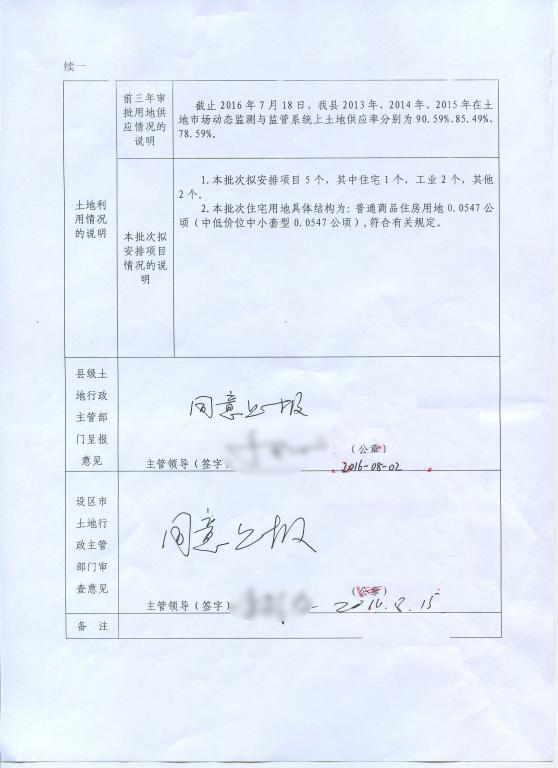 续一
前三年审
批用地供
应情况的
说明
截止2016年7月18日，我县2013年、2014年、2015年在土
地市场动态监测与监管系统上土地供应率分别为90.59%、85.49%、
78.59%。
土地利
用情况
的说明
本批次拟
安排项目
情况的说
明
1.本批次拟安排项目5个，其中住宅1个，工业2个，其他
2个。
2.本批次住宅用地具体结构为：普通商品住房用地0.0547公
顷（中低价位中小套型0.0547公顷），符合有关规定。
县级土
地行政
主管部
门呈报
意见
同意上报
（公章）
主管领导（签字
2016-08-02
设区市
土地行
政主管
部门审
查意见
同意上报
（公章）
主管领导（签字）
2016.8.15
备 注